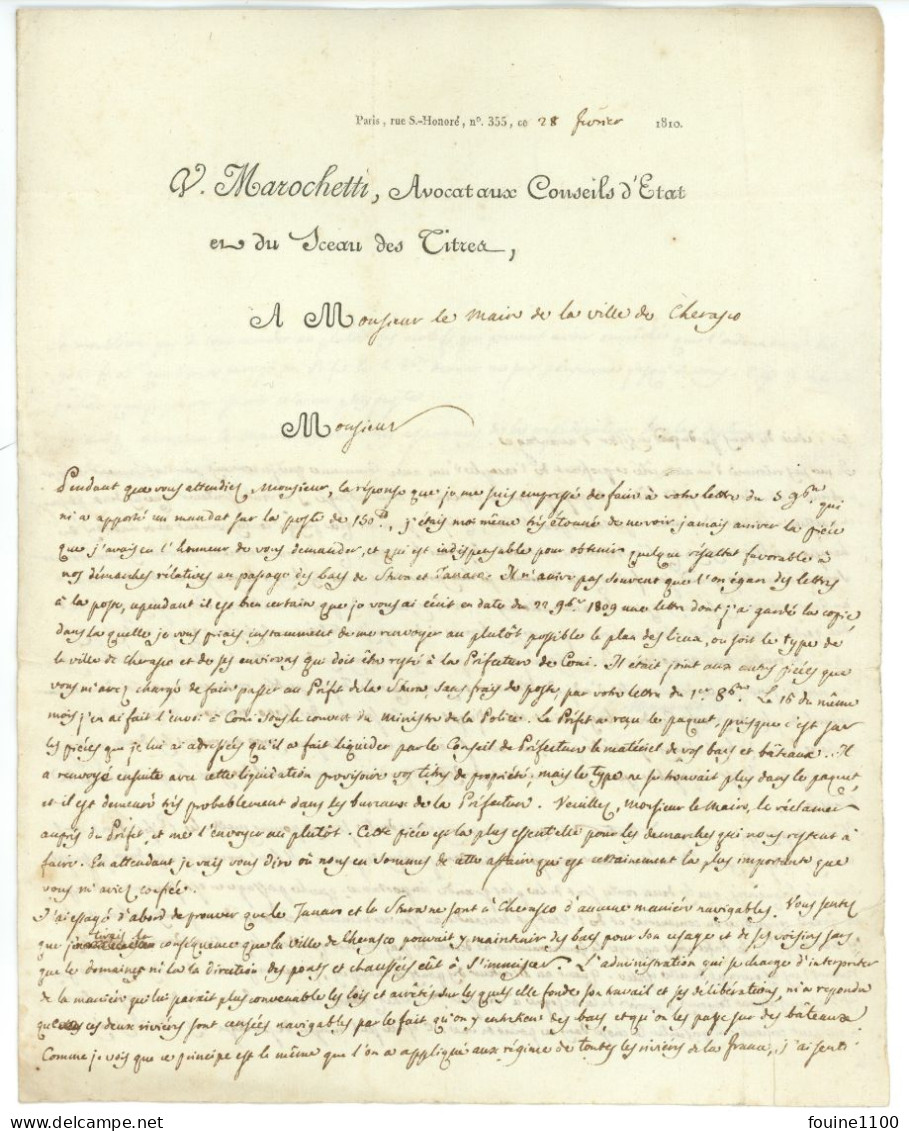 Paris, rue S.-Honoré, n°. 355, ce 28 février 1810.
V. Marochetti, Avocat aux Conseils d'Etat
et du Sceau des Titres,
A Monsieur le Maire de la ville de Cherasco
Monsieur
Pendant que vous attendiez, Monsieur, la réponse que je me suis empressé de faire à votre lettre du 5 9bre qui
m'a apporté un mandat sur la poste de 150 , j'étais moi même très étonné de ne voir jamais arriver la pièce
que j'avais eu l'honneur de vous demander, et qui est indispensable pour obtenir quelque résultat favorable à
nos démarches relatives au passage des bacs de Stura et Tanaro. Il n'arrive pas souvent que l'on égare des lettres
à la poste, cependant il est bien certain que je vous ai écrit en date du 22 9bre 1809 une lettre dont j'ai gardé la copie
dans laquelle je vous priais instamment de me renvoyer au plutôt possible le plan des lieux, ou soit le type de
la ville de Cherasco et de ses environs qui doit être resté à la Préfecture de Coni. Il était joint aux autres pièces que
vous m'avez chargé de faire passer au Préfet de la Stura, sans frais de poste, par votre lettre du 1er 8bre. Le 16 du même
mois j'en ai fait l'envoi à Coni sous le couvert du Ministre de la Police. Le Préfet a reçu le paquet, puisque c'est sur
les pièces que je lui ai adressées qu'il a fait liquider par le Conseil de Préfecture le matériel de vos bacs et bateaux. Il
a renvoyé ensuite avec cette liquidation provisoire vos titres de propriété; mais le type ne se trouvait plus dans le paquet
et il est demeuré très probablement dans les bureaux de la Préfecture. Veuillez, Monsieur le Maire, le réclamer
auprès du Préfet, et me l'envoyer au plutôt. Cette pièce est la plus essentielle pour les demarches qui nous restent à
faire. En attendant je vais vous dire où nous en sommes de cette affaire qui est certainement la plus importante que
vous m'aviez confiée.
J'ai essayé d'abord de prouver que le Tanaro et la Stura ne sont à Cherasco d'aucune manière navigables. Vous sentez
que je tirais la conséquence que la ville de Cherasco pouvait y maintenir des bacs pour son usage et de ses voisins sans
que le domaine ni la direction des ponts et chaussées eût à s'immiscer. L'administration qui se charge d'interpreter
de la manière qui lui parait plus convenable les lois et arrêtés sur les quels elle fonde son travail et ses délibérations, m'a repondu
que ces deux rivières sont censées navigables par le fait qu'on y entretien des bacs, et qu'on les passe sur des bâteaux.
Comme je vois que ce principe est le même que l'on a appliqué aux régime de toutes les rivières de la france, j'ai senti
fouine1100